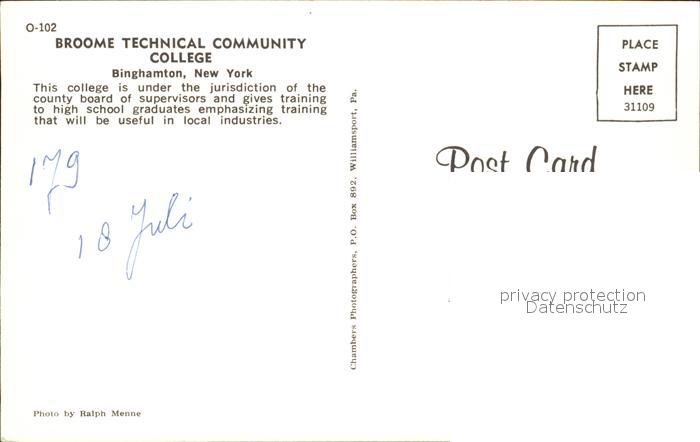 O-102
BROOME TECHNICAL COMMUNITY
COLLEGE
Binghamton, New York
This college is under the jurisdiction of the
county board of supervisors and gives training
to high school graduates emphasizing training
that will be useful in local industries.
179
18 Juli
Photo by Ralph Menne
Chambers Photographers, P.O. Box 892, Williamsport, Pa.
PLACE
STAMP
HERE
31109
Post Card
privacy protection
Datenschutz